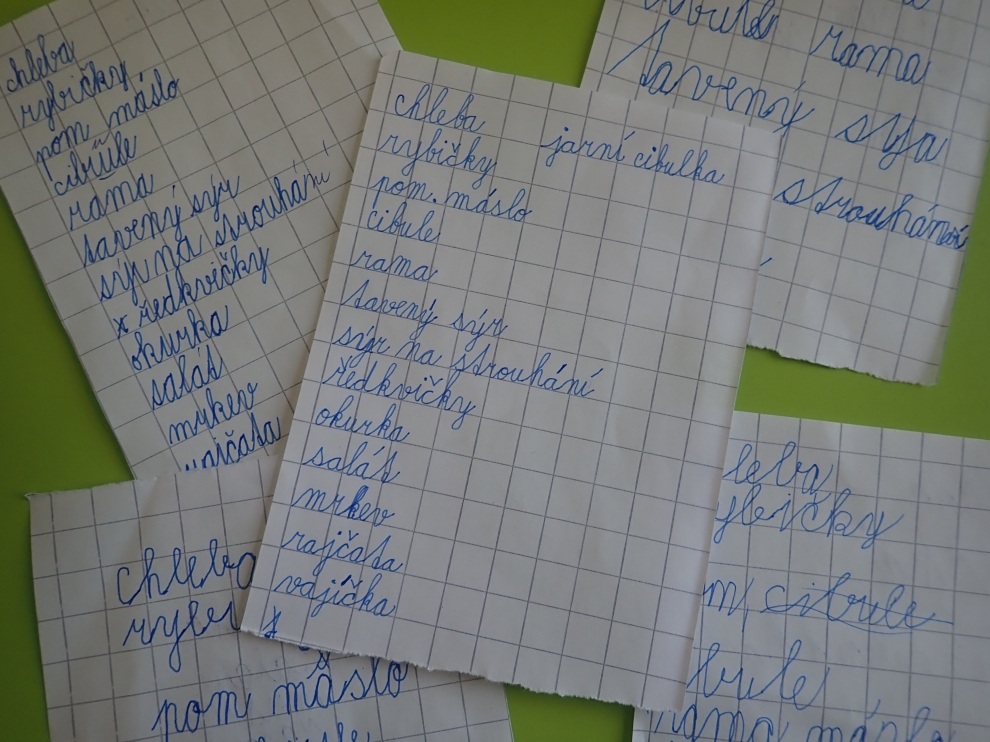 chleba
rybičky
pom. máslo
cibule
rama
tavený sýr
sýr na strouhání
x ředkvičky
okurka
salát
mrkev
rajčata
chleba
rybičky
jarní cibulka
pom. máslo
cibule
rama
tavený sýr
sýr na strouhání
ředkvičky
okurka
salát
mrkev
rajčata
vajíčka
rama
tavený
strouhání
leba
cibule
bule
rama
chleba
pom máslo